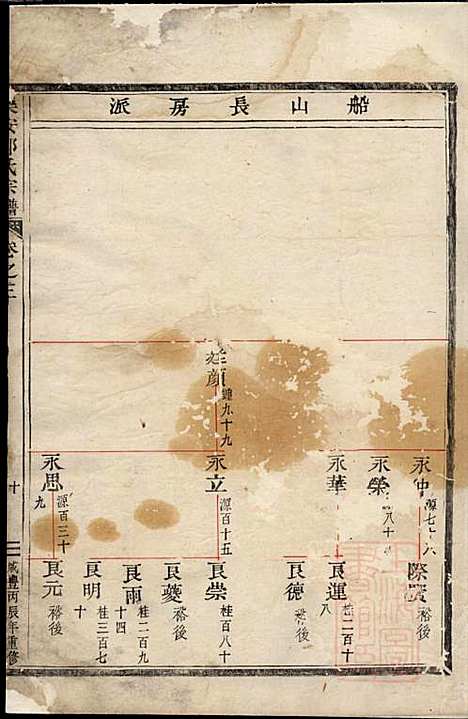 船山長房派
永中
源七十六
際盛
裕後
永榮
永華
良運
桂二百十八
良德
裕後
彦
鍾九十九
永立
源百十五
良崇
桂百八十
良夔
裕後
良雨
桂二百九十四
良明
桂三百七十
永思
源百三十九
良元
裕後
氏宗譜
卷之三
十
咸豐丙辰年重修